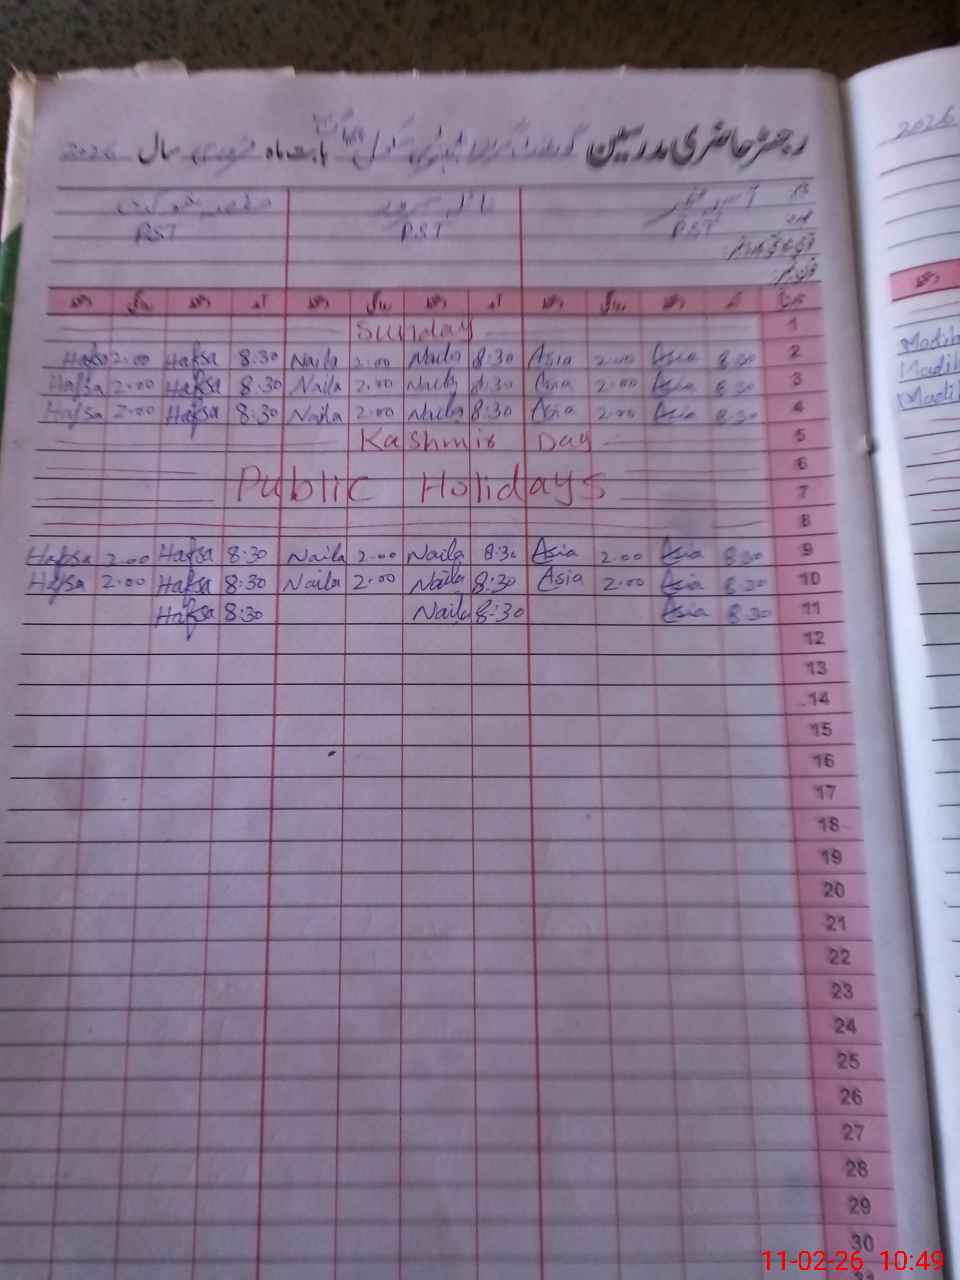 رجسٹر حاضری مدرسین گورنمنٹ گرلز پرائمری سکول بابت ماہ فروری سال 2026
نام
عہدہ PST P.S.T P.S.T
تاریخ آمد دستخط روانگی دستخط آمد دستخط روانگی دستخط آمد دستخط روانگی دستخط
1 Sunday
2 8:30 Asia 2:00 Asia 8:30 Naila 2:00 Naila 8:30 Hafsa 2:00 Hafsa
3 8:30 Asia 2:00 Asia 8:30 Naila 2:00 Naila 8:30 Hafsa 2:00 Hafsa
4 8:30 Asia 2:00 Asia 8:30 Naila 2:00 Naila 8:30 Hafsa 2:00 Hafsa
5 Kashmir Day
6
7 Public Holidays
8
9 8:30 Asia 2:00 Asia 8:30 Naila 2:00 Naila 8:30 Hafsa 2:00 Hafsa
10 8:30 Asia 2:00 Asia 8:30 Naila 2:00 Naila 8:30 Hafsa 2:00 Hafsa
11 8:30 Asia 8:30 Naila 8:30 Hafsa
12
13
14
15
16
17
18
19
20
21
22
23
24
25
26
27
28
29
30
2026
دستخط
11-02-26 10:49